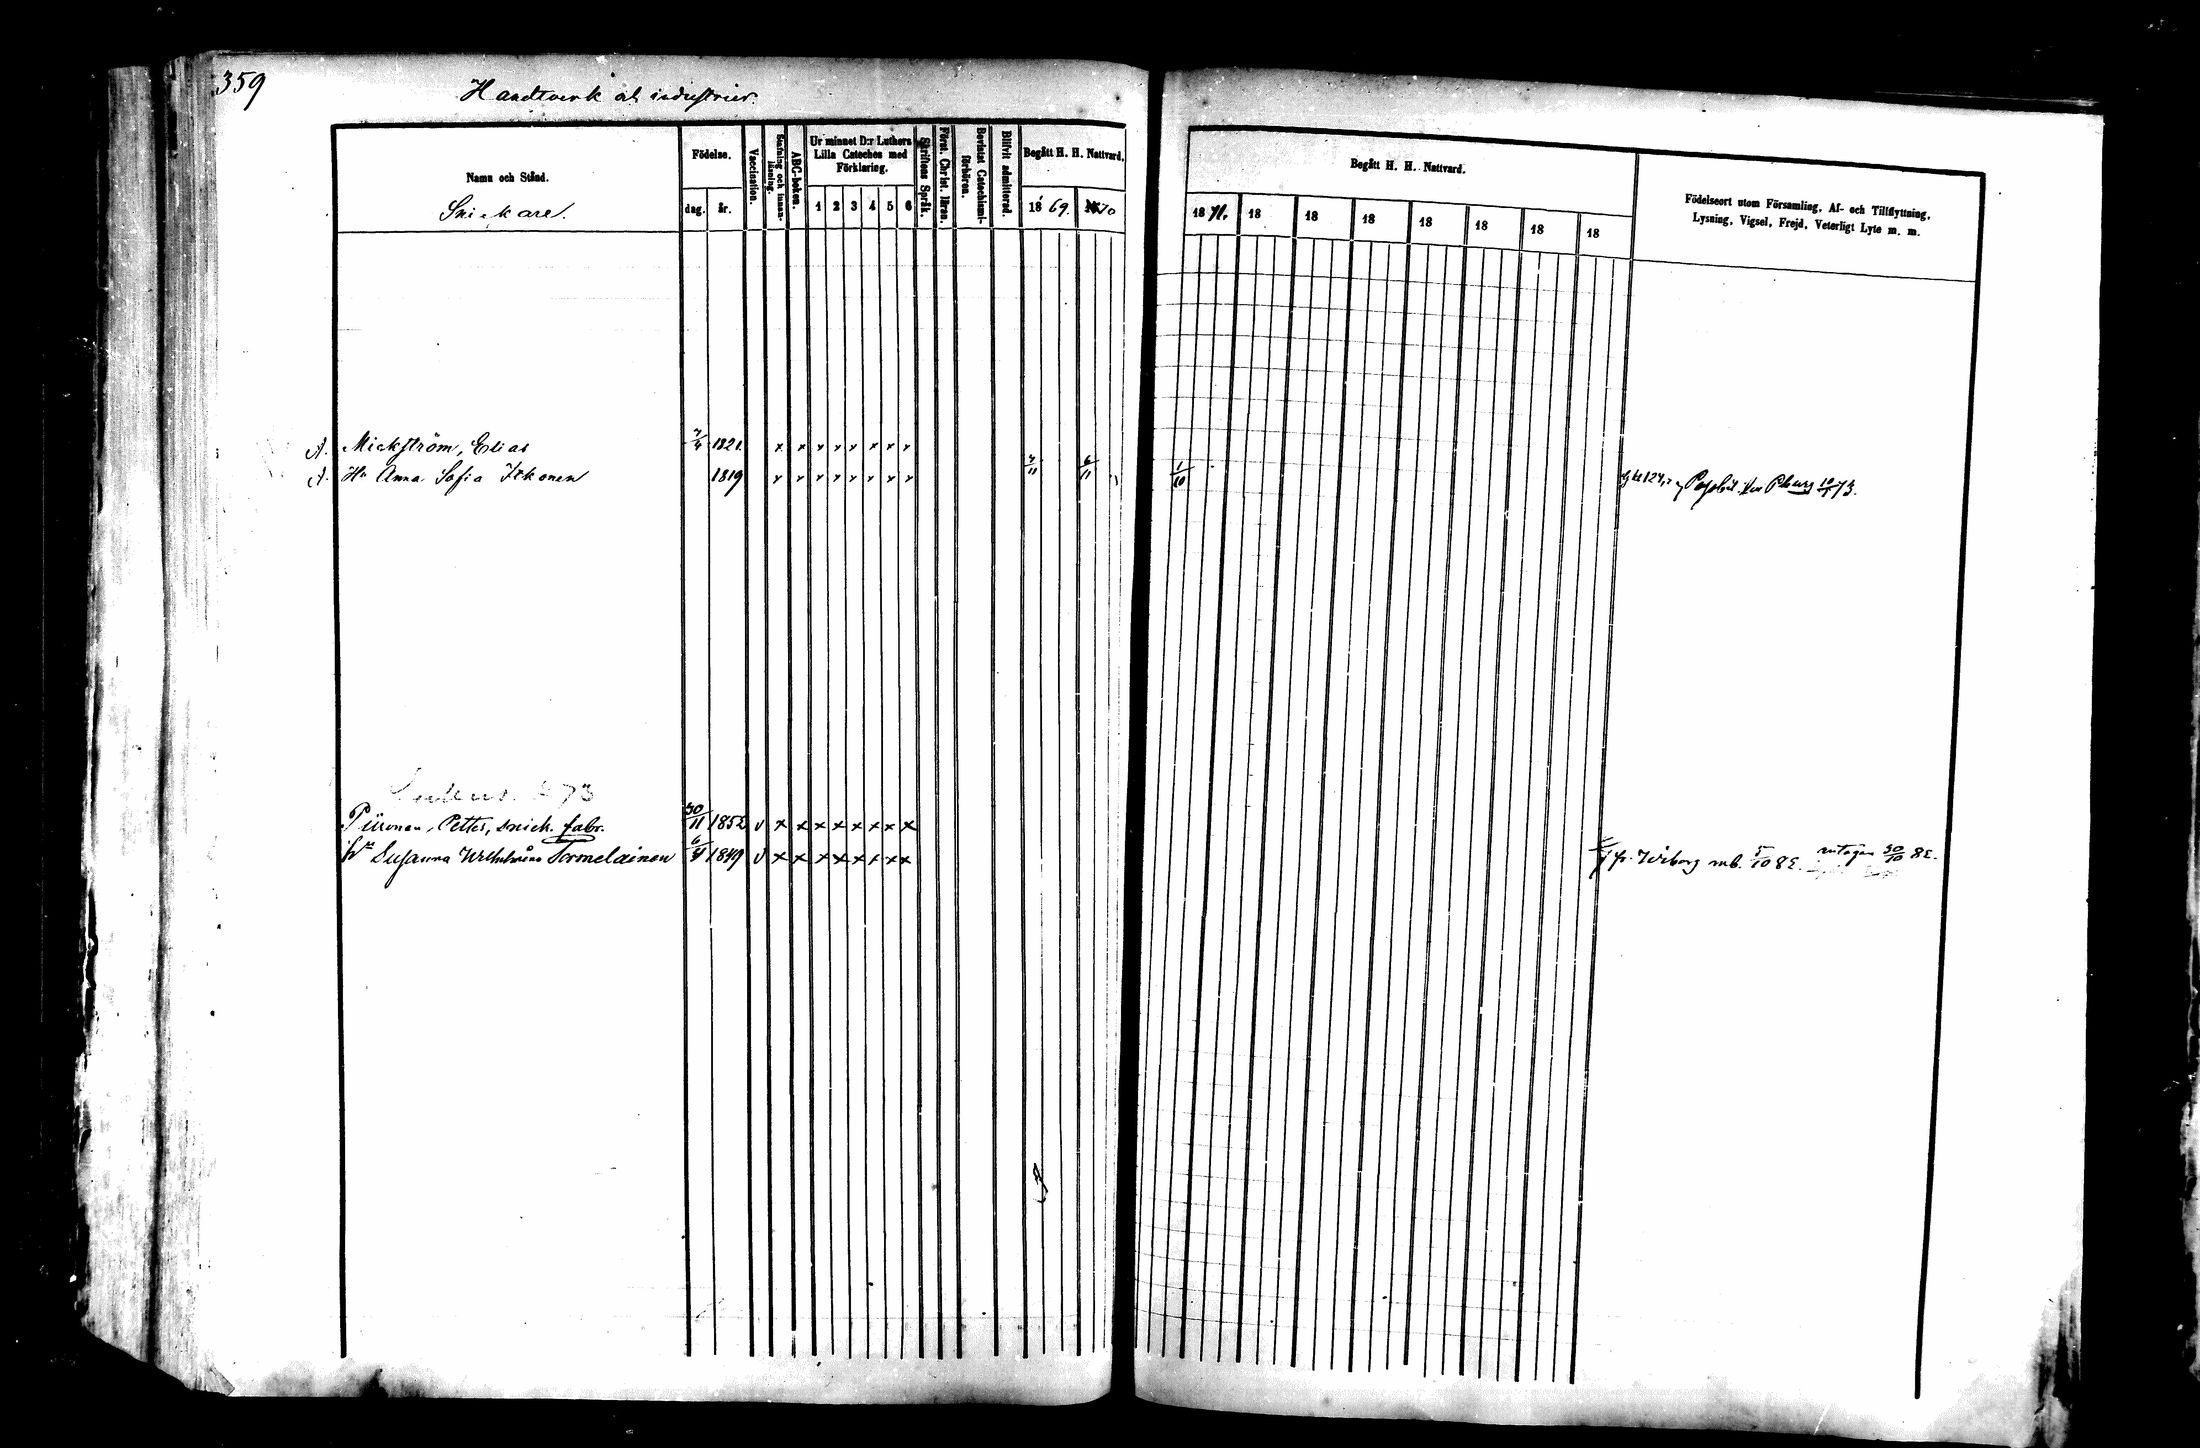 359
Handtverk och industrier.
Namn och Stånd.
Snickare.
Födelse.
dag. år.
Vaccination.
Stafning och innanläsning.
ABC-boken.
Ur minnet D:r Luthers Lilla Cateches med Förklaring.
1 2 3 4 5 6
Skriftens Språk.
Först. Christ. läran.
Bevistat Catechismi-förhören.
Blifvit admitterad.
Begått H. H. Nattvard.
1869. 1870
Begått H. H. Nattvard.
1871. 18 18 18 18 18 18 18
Födelseort utom Församling, Af- och Tillflyttning,
Lysning, Vigsel, Frejd, Veterligt Lyte m. m.
Mickström, Elias 1821 x x x x x x x x
Hu Anna Sofia Itkonen 1819 x x x x x x x x 4/11 6/11 1/10 Pburg 10/1 73.
Piironen, Petter, snick. fabr. 30/11 1852 v x x x x x x x x
Hu Susanna Wilhelmina Tormelainen 1849 v x x x x x x x x fr. Wiborg mb. 5/10 82. 30/10 82.